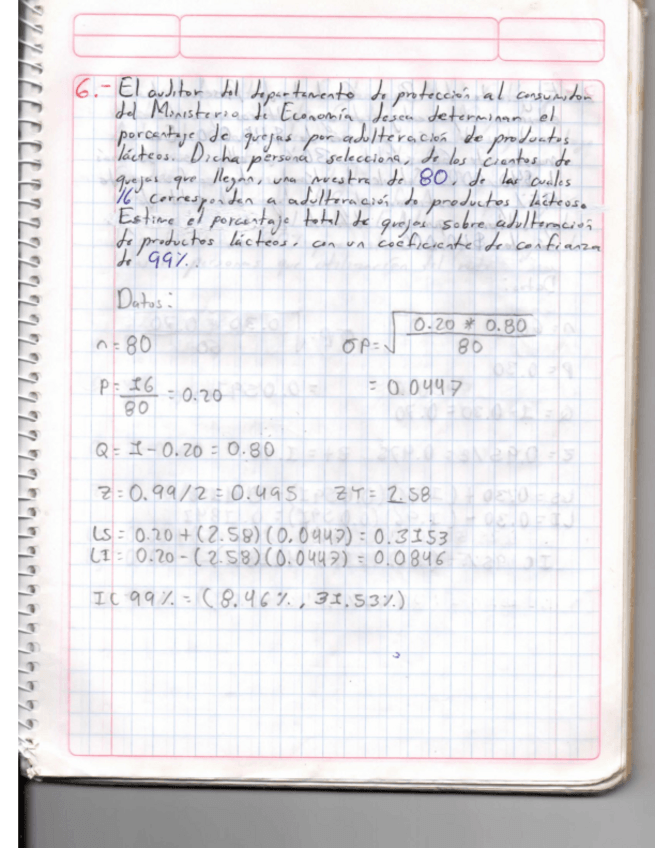 6.- El auditor del departamento de protección al consumidor
del Ministerio de Economía desea determinar el
porcentaje de quejas por adulteración de productos
lácteos. Dicha persona selecciona, de los cientos de
quejas que llegan, una muestra de 80, de las cuales
16 corresponden a adulteración de productos lácteos.
Estime el porcentaje total de quejas sobre adulteración
de productos lácteos, con un coeficiente de confianza
de 99%.
Datos:
n = 80 σP = √(0.20 * 0.80 / 80)
P = 16/80 = 0.20 = 0.0447
Q = 1 - 0.20 = 0.80
Z = 0.99/2 = 0.495 ZT = 2.58
LS = 0.20 + (2.58)(0.0447) = 0.3153
LI = 0.20 - (2.58)(0.0447) = 0.0846
IC 99% = (8.46%, 31.53%)